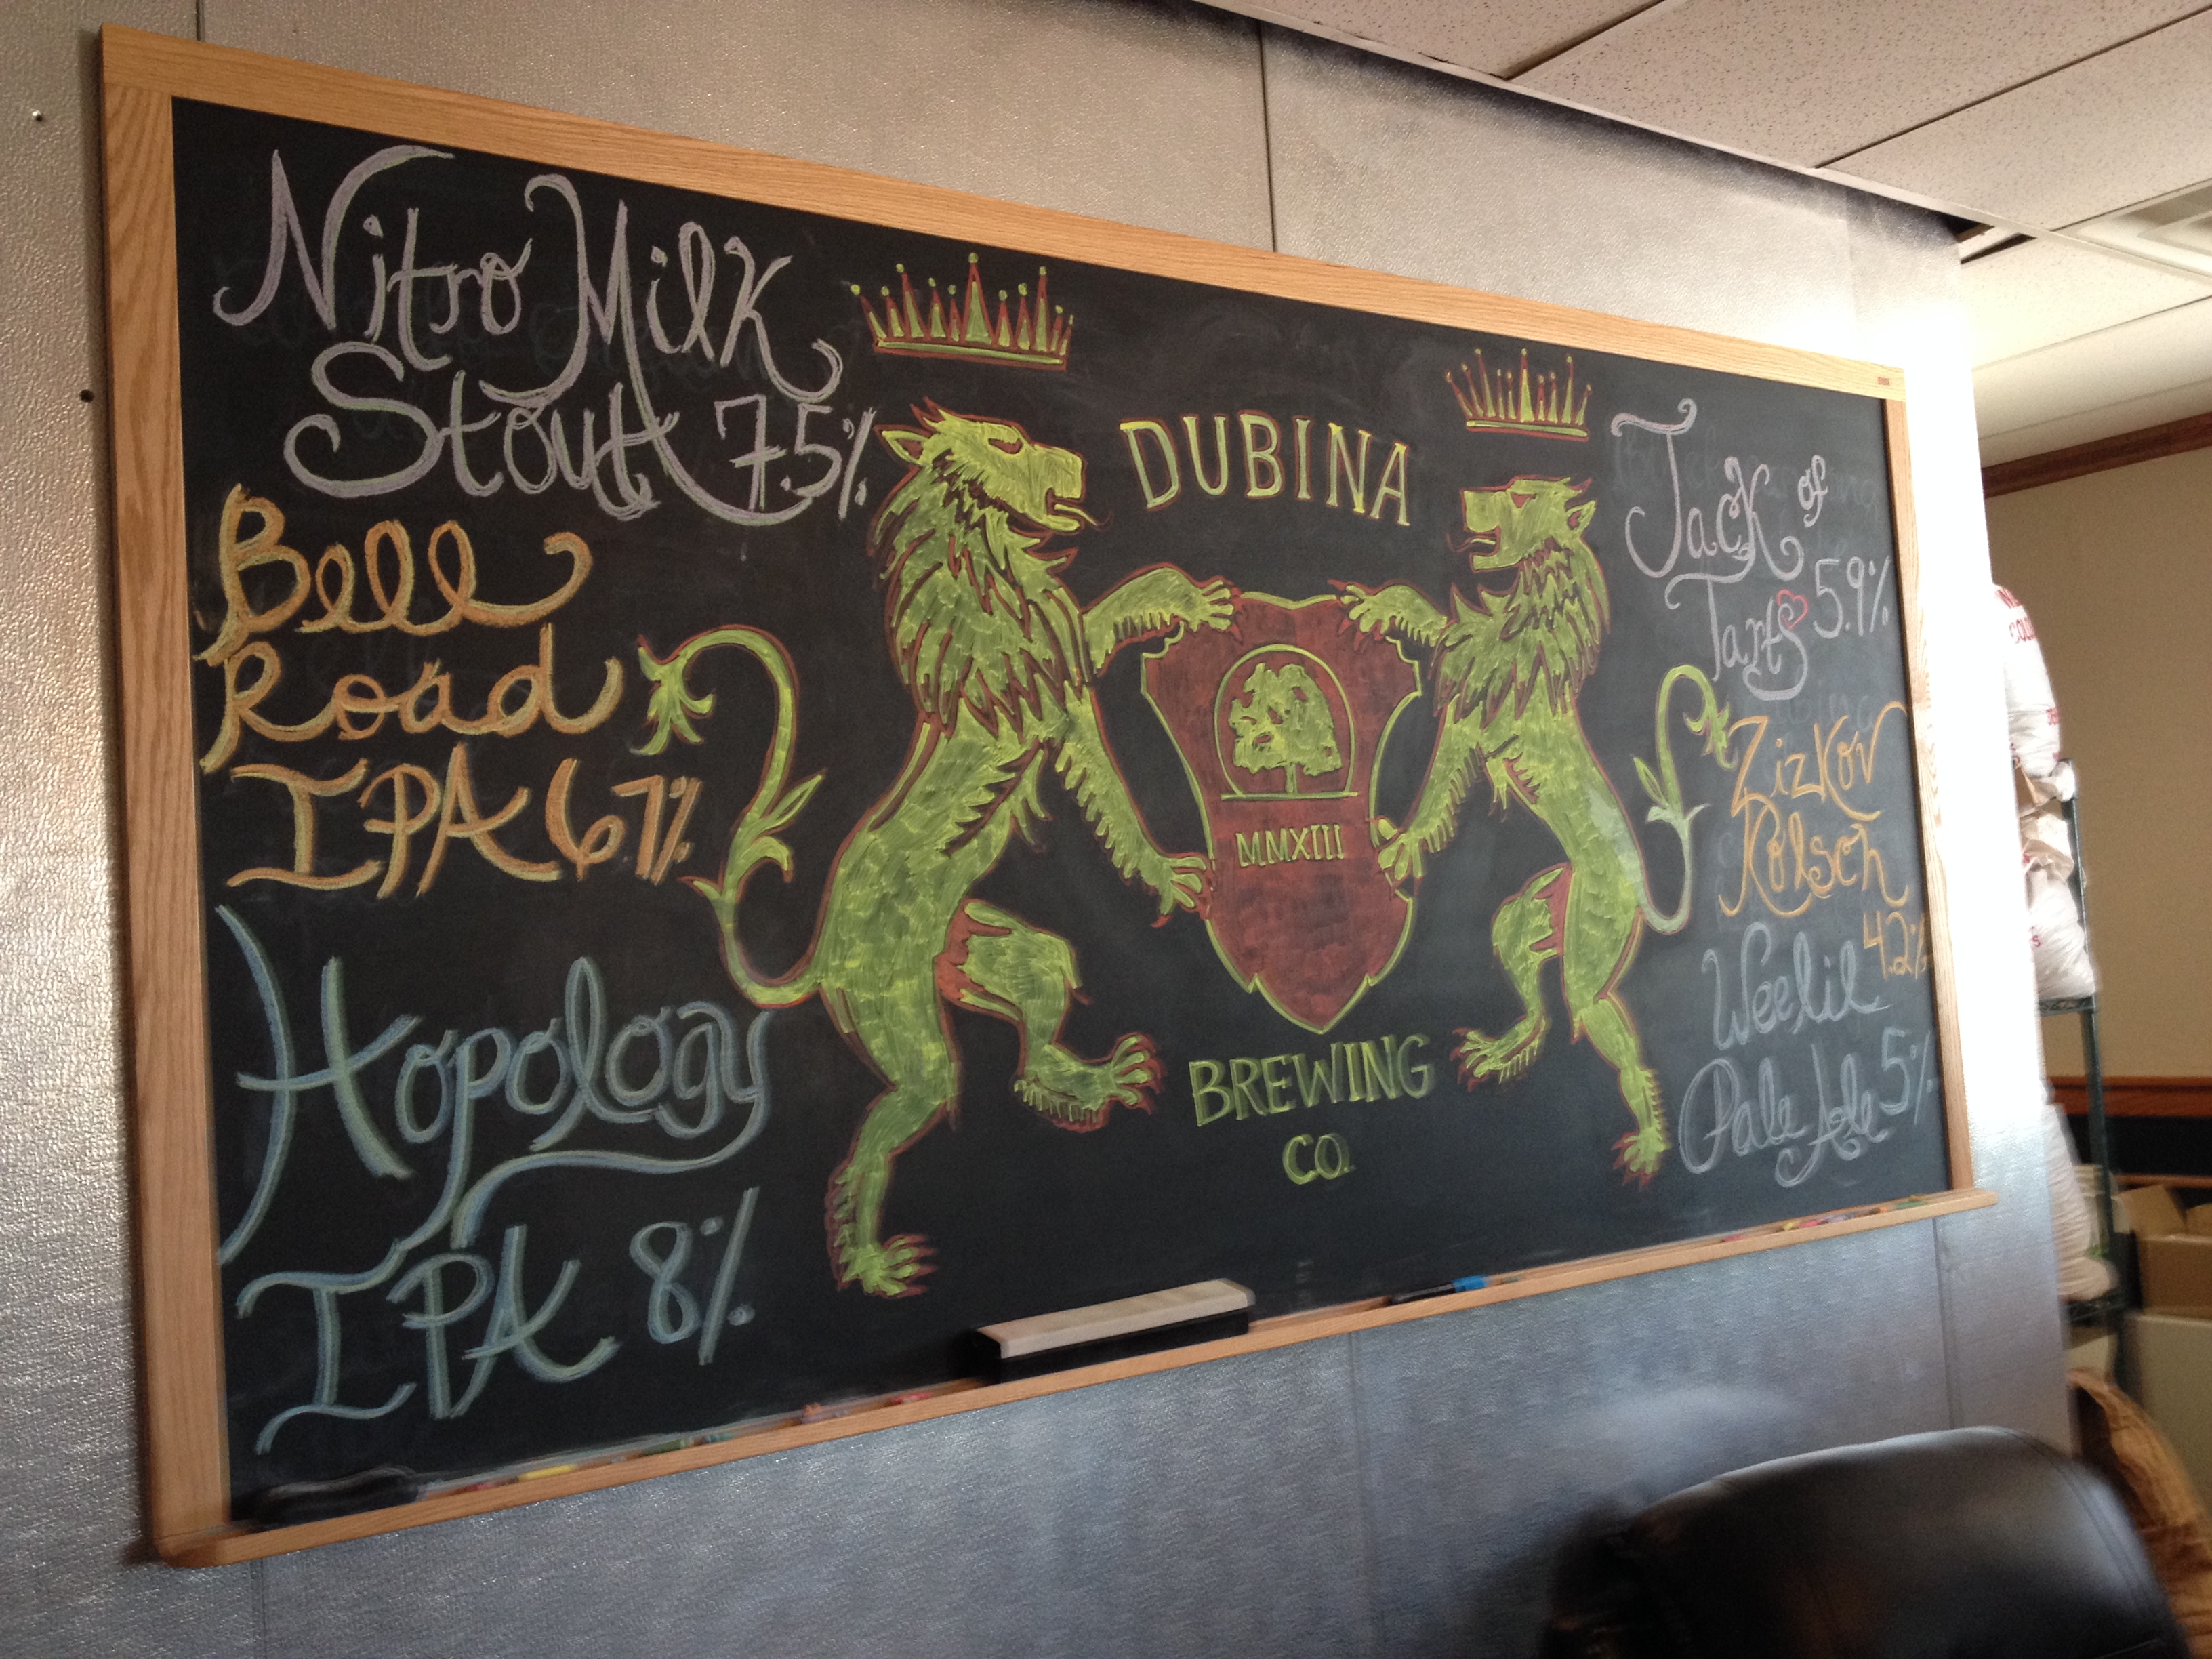 Nitro Milk
Stout 7.5%
Bell
Road
IPA 6.7%
Hopology
IPA 8%
DUBINA
MMXIII
BREWING
CO.
Jack of
Tarts 5.9%
Zizkov
Kolsch
4.2%
Weelil
Pale Ale 5%